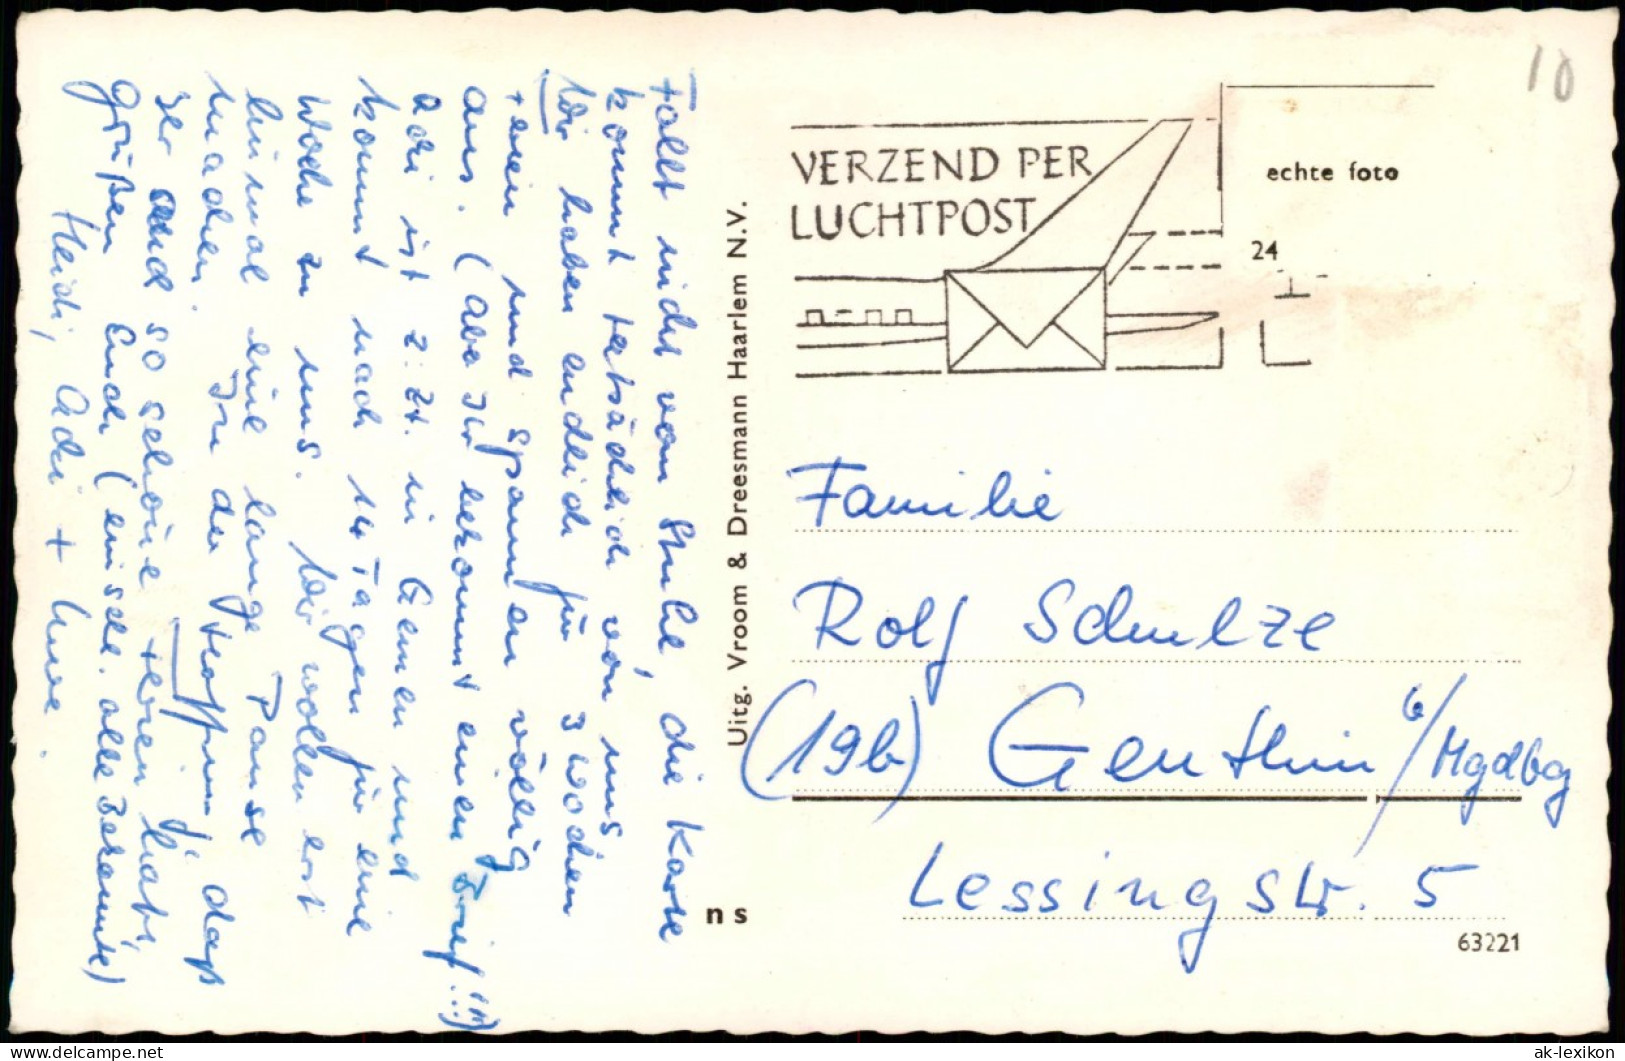 Fallt nicht vom Stuhl, die Karte
kommt tatsächlich von uns
Wir haben endlich für 3 Wochen
Ferien und spannen völlig
aus. (Aber Ihr bekommt einen Brief!!!)
Adi ist z. Zt. in Gemen und
kommt nach 14 Tagen für eine
Woche zu uns. Wir wollen erst
einmal eine lange Pause
machen. In der Hoffnung, daß
Ihr auch so schöne Ferien habt,
grüßen Euch (einschl. alle Bekannte)
Heidi, Adi + Uwe.
Uitg. Vroom & Dreesmann Haarlem N.V.
ns
VERZEND PER
LUCHTPOST
echte foto
24
10
Familie
Rolf Schulze
(19b) Genthin b/Mgdbg
Lessingstr. 5
63221
akpool.de
ak-lexikon